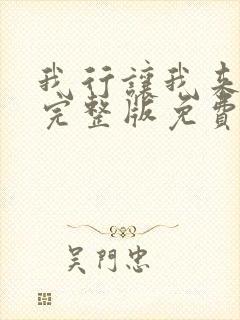 我行讓我來
完整版免費
吳門忠